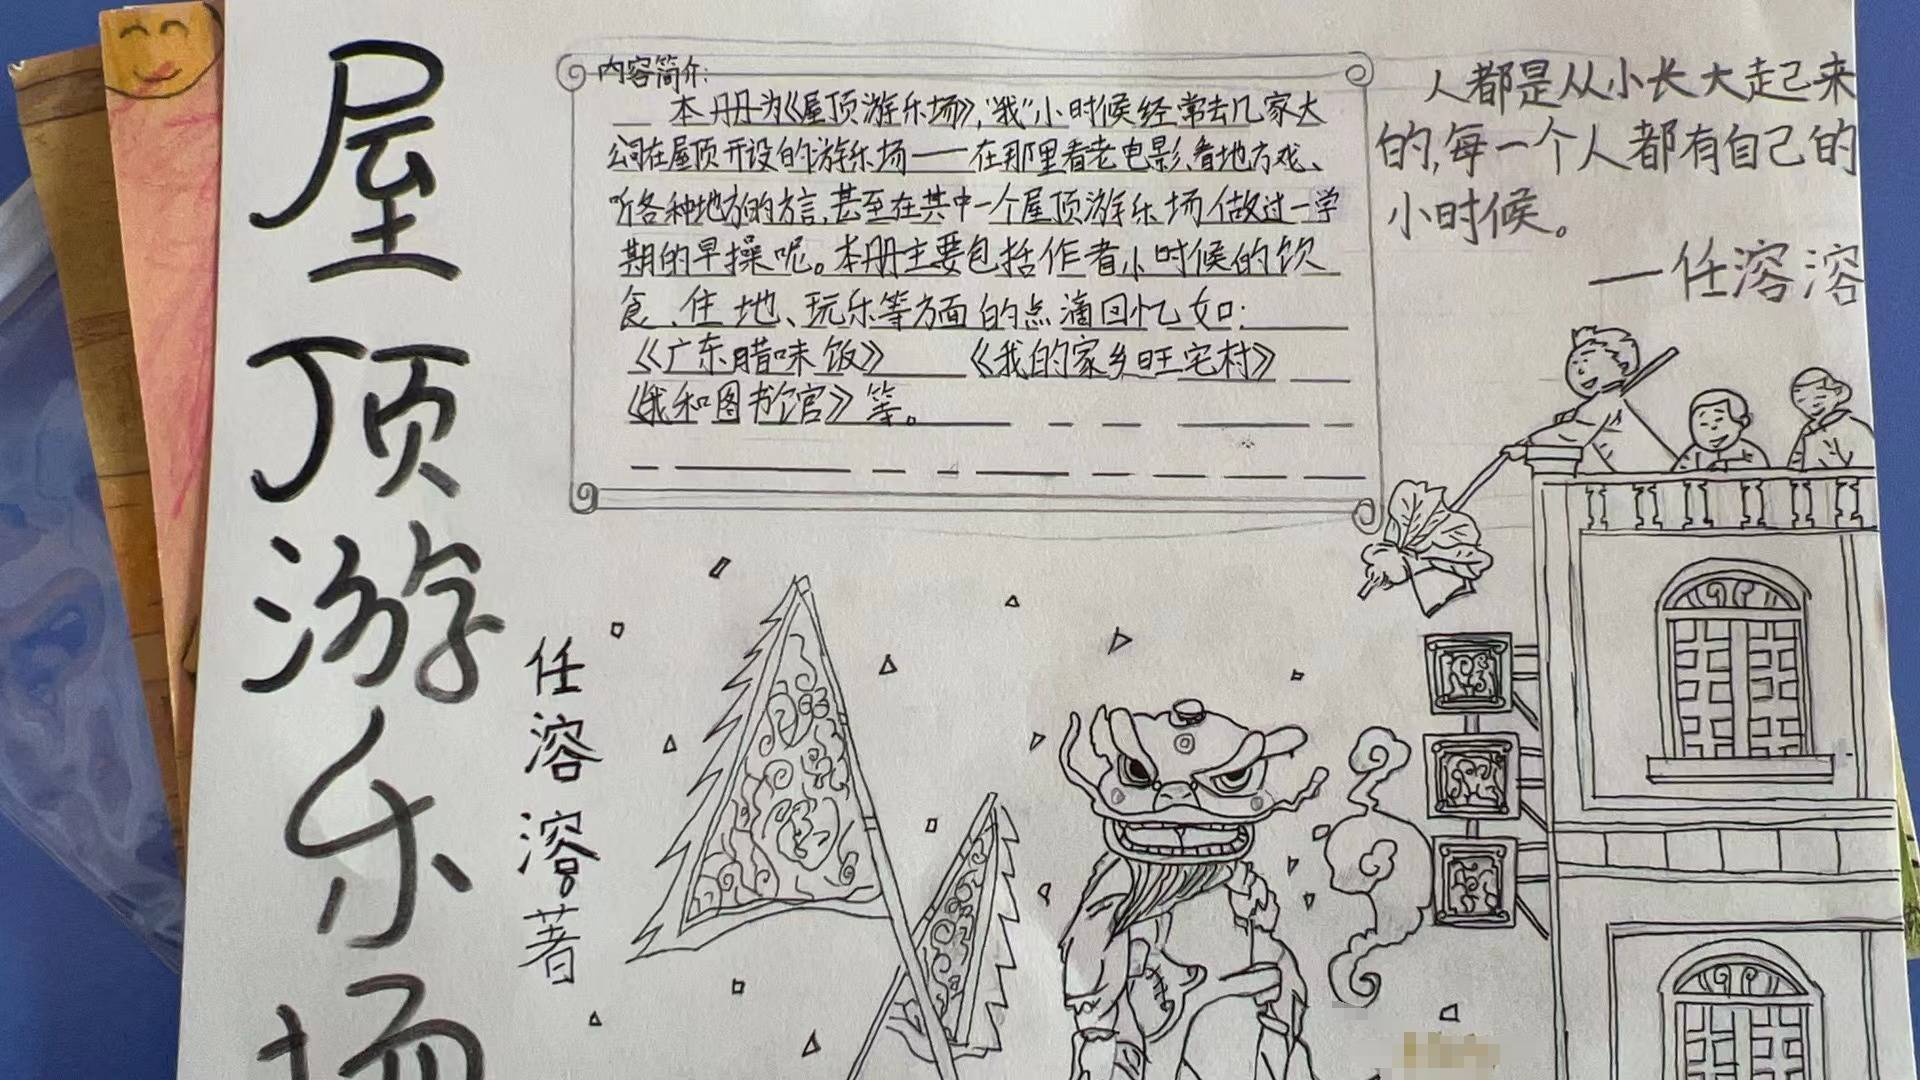 屋顶游乐场
任溶溶著
内容简介:
本册为《屋顶游乐场》,“我”小时候经常去几家大
公司在屋顶开设的游乐场——在那里看老电影、看地方戏、
听各种地方的方言,甚至在其中一个屋顶游乐场做过一学
期的早操呢。本册主要包括作者小时候的饮
食、住地、玩乐等方面的点滴回忆如:
《广东腊味饭》 《我的家乡旺宅村》
《我和图书馆》等。
人都是从小长大走过来
的,每一个人都有自己的
小时候。
—任溶溶